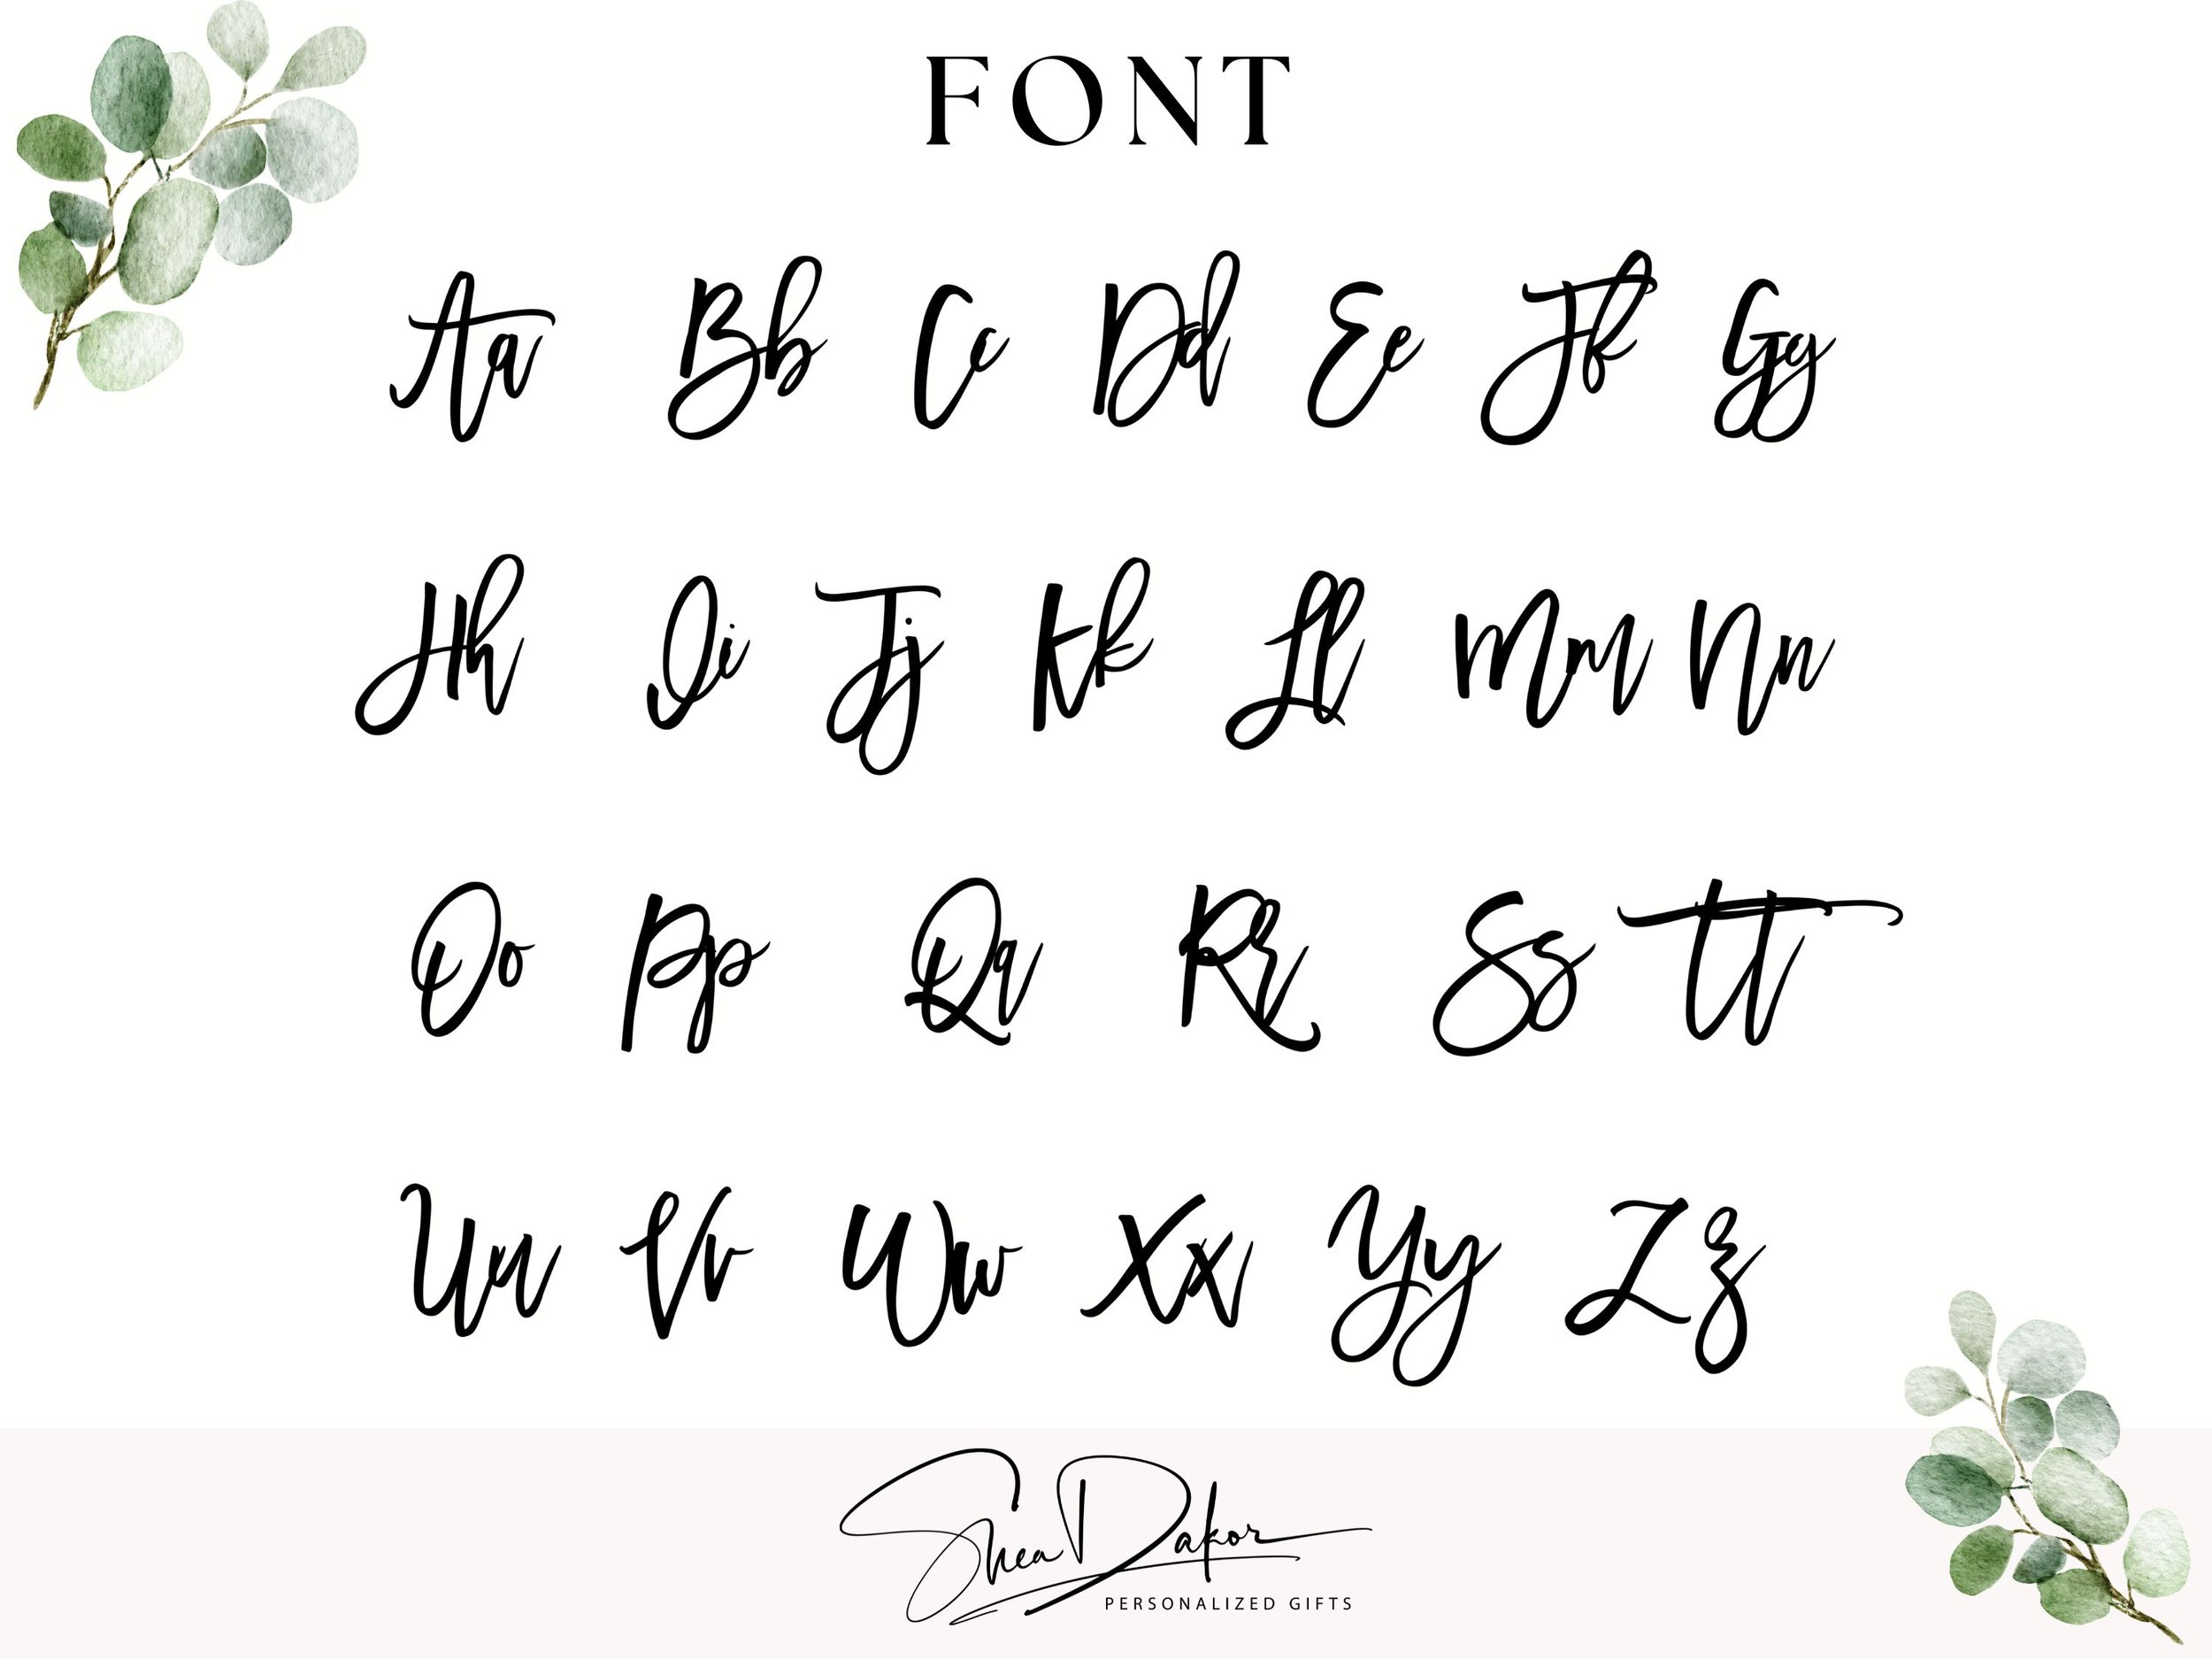 FONT
Aa Bb Cc Dd Ee Ff Gg
Hh Ii Jj Kk Ll Mm Nn
Oo Pp Qq Rr Ss Tt
Uu Vv Ww Xx Yy Zz
Shea Dakor
PERSONALIZED GIFTS